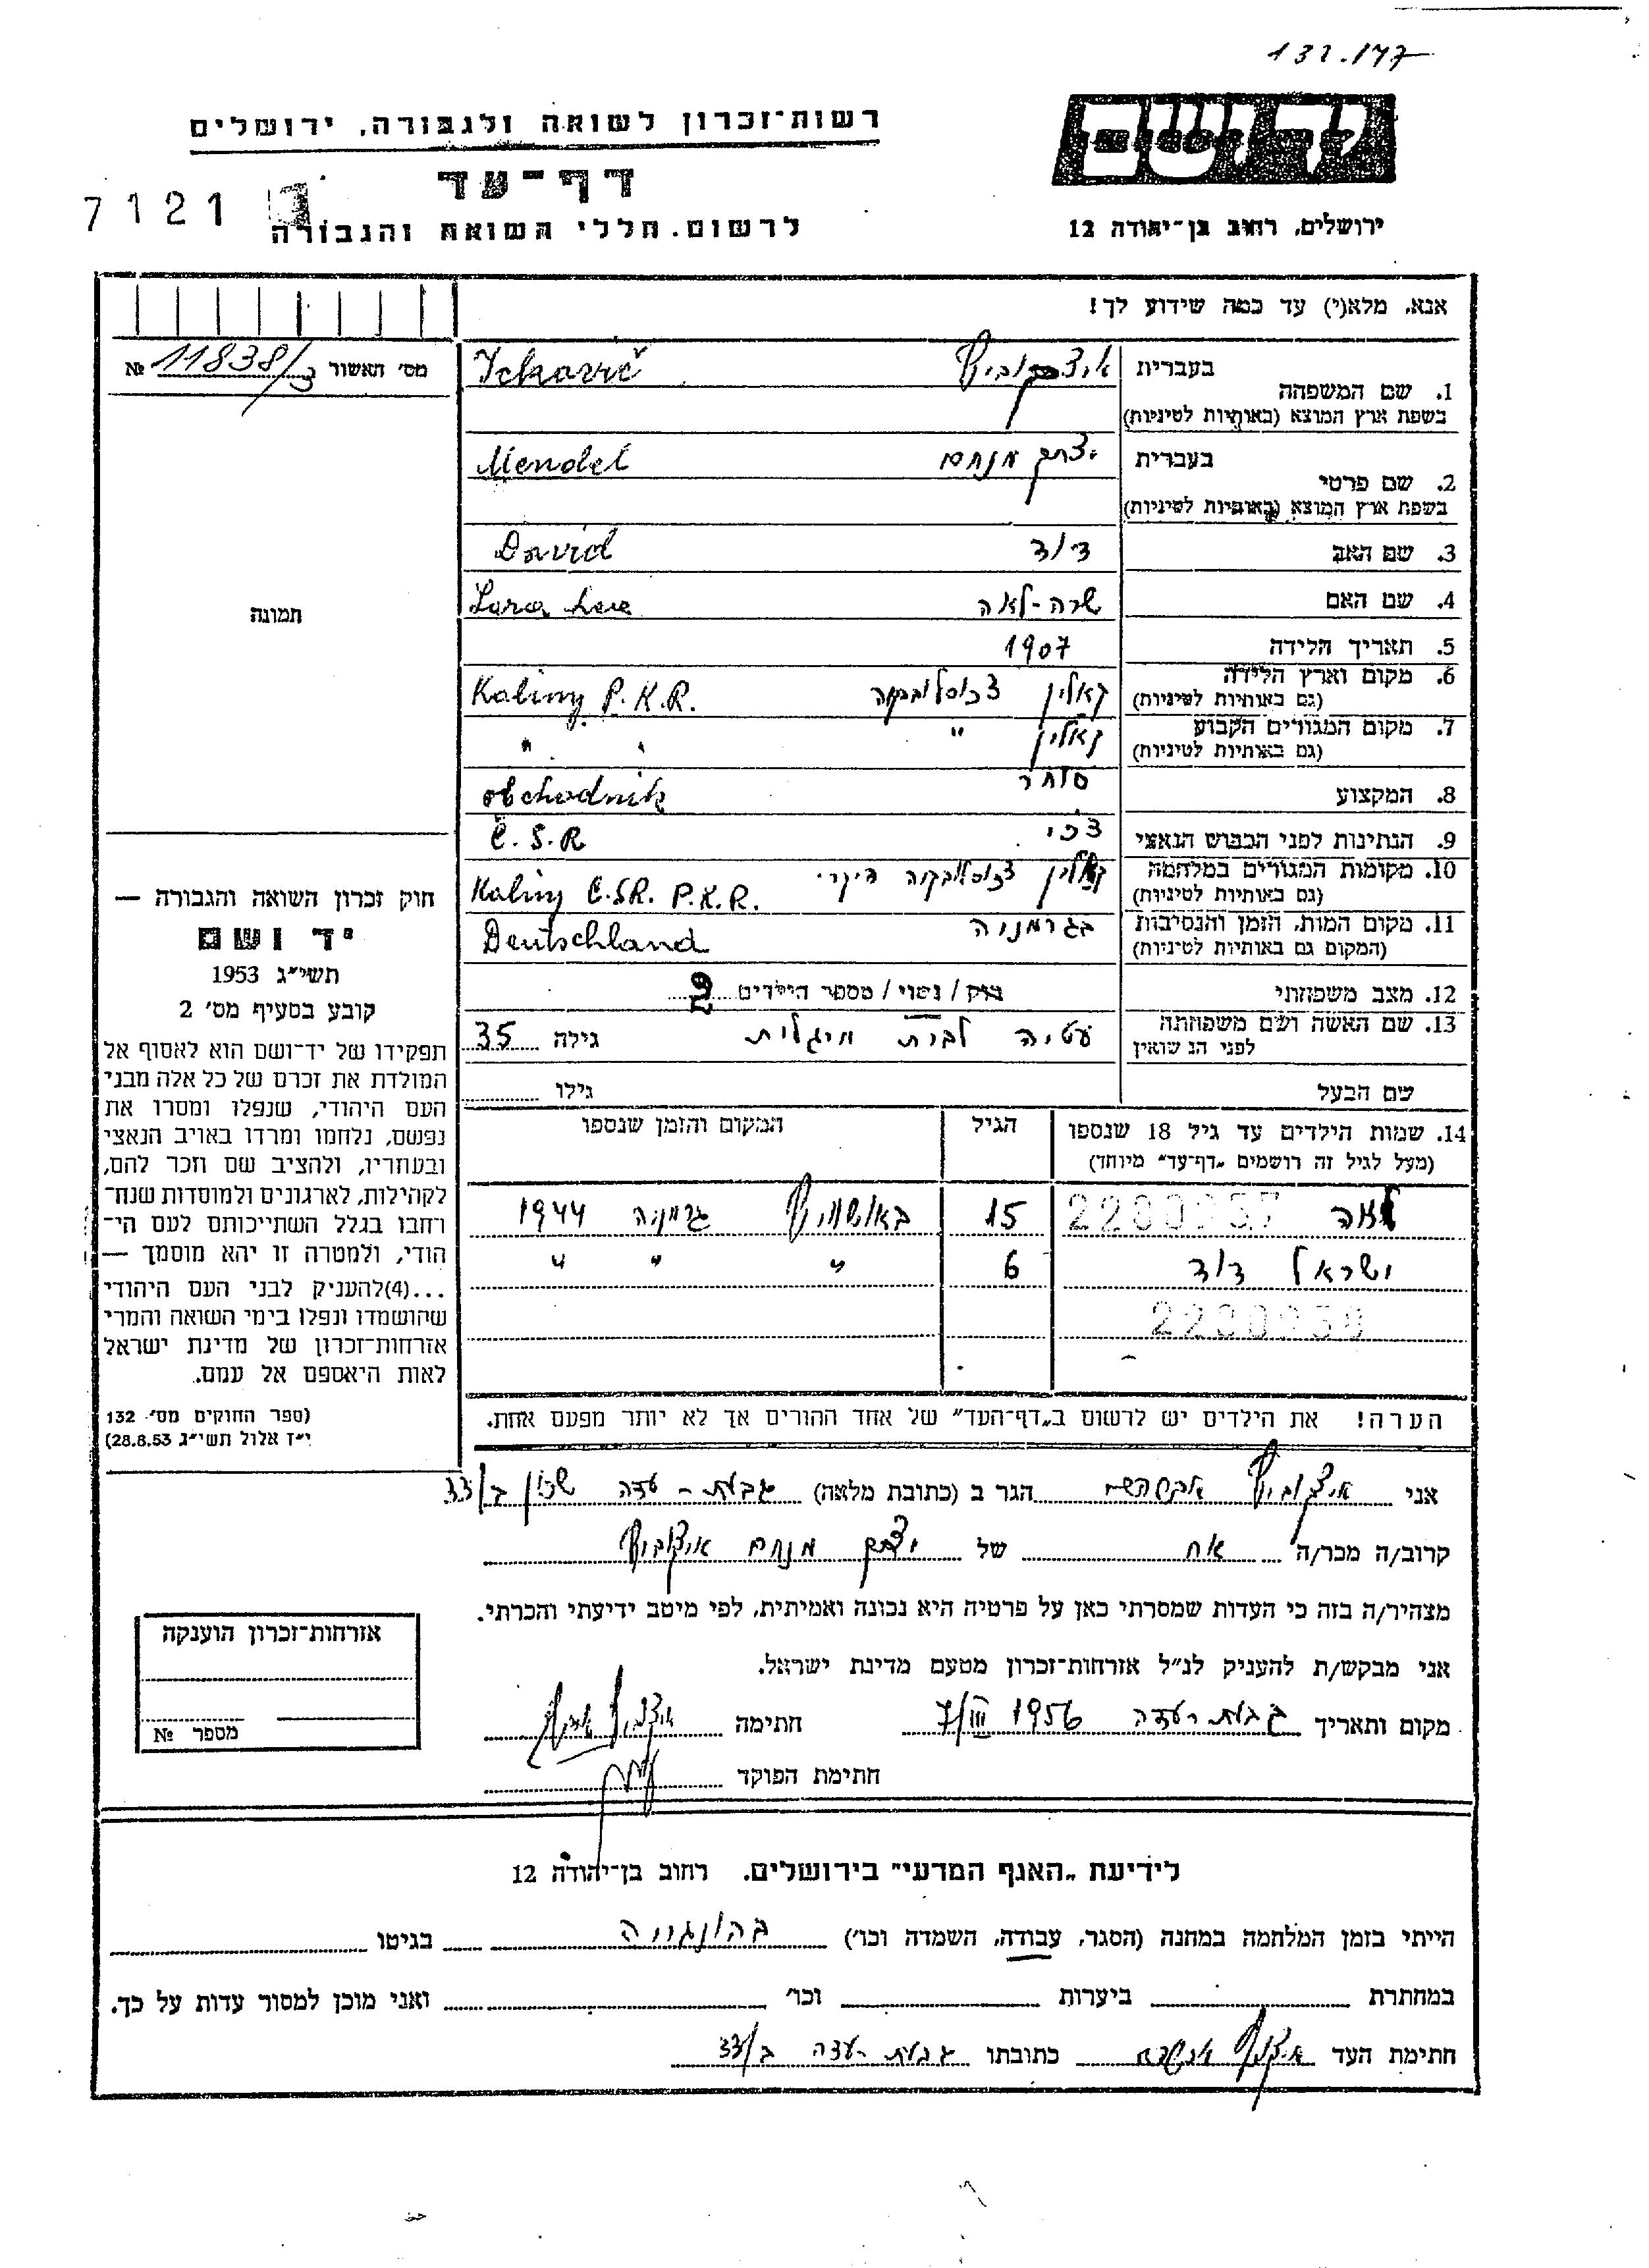 132.177
רשות־זכרון לשואה ולגבורה, ירושלים
יד ושם
דף־עד
7121
לרשום חללי השואה והגבורה
ירושלים, רחוב בן־יהודה 12
אנא, מלא(י) עד כמה שידוע לך!
מס׳ האשור № 11838/3
1. שם המשפחה בעברית איצקוביץ Ickovič
בשפת ארץ המוצא (באותיות לטיניות)
2. שם פרטי בעברית יצחק מנחם Mendel
בשפת ארץ המוצא (באותיות לטיניות)
3. שם האב דוד David
4. שם האם שרה-לאה Sara Lea
5. תאריך הלידה 1907
6. מקום וארץ הלידה קאלין צכוסלובקיה Kaliny P.K.R.
(גם באותיות לטיניות)
7. מקום המגורים הקבוע קאלין " " "
(גם באותיות לטיניות)
8. המקצוע סוחר obchodnik
9. הנתינות לפני הכבוש הנאצי צכי Č.S.R
10. מקומות המגורים במלחמה קאלין צכוסלובקיה Kaliny Č.SR. P.K.R.
(גם באותיות לטיניות)
11. מקום המות, הזמן והנסיבות בגרמניה Deutschland
(המקום גם באותיות לטיניות)
12. מצב משפחתי רוק / נשוי / מספר הילדים 2
13. שם האשה ושם משפחתה לבית גילה 35
לפני הנשואין
שם הבעל גילו
14. שמות הילדים עד גיל 18 שנספו הגיל המקום והזמן שנספו
(מעל לגיל זה רושמים „דף־עד״ מיוחד)
לאה 15 באושוויץ גרמניה 1944
ישראל דוד 6 " " "
הערה! את הילדים יש לרשום ב„דף־העד״ של אחד ההורים אך לא יותר מפעם אחת.
תמונה
חוק זכרון השואה והגבורה —
יד ושם
תשי״ג 1953
קובע בסעיף מס׳ 2
תפקידו של יד־ושם הוא לאסוף אל
המולדת את זכרם של כל אלה מבני
העם היהודי, שנפלו ומסרו את
נפשם, נלחמו ומרדו באויב הנאצי
ובעוזריו, ולהציב שם וזכר להם,
לקהילות, לארגונים ולמוסדות שנח־
רבו בגלל השתייכותם לעם הי־
הודי, ולמטרה זו יהא מוסמך —
...(4)להעניק לבני העם היהודי
שהושמדו ונפלו בימי השואה והמרי
אזרחות־זכרון של מדינת ישראל
לאות היאספם אל עמם.
(ספר החוקים מס׳ 132
י״ז אלול תשי״ג 28.8.53)
אני איצקוביץ הגר ב (כתובת מלאה) גבעת-עדה שכון ב/33
קרוב/ה מכר/ה אח של יצחק מנחם איצקוביץ
מצהיר/ה בזה כי העדות שמסרתי כאן על פרטיה היא נכונה ואמיתית, לפי מיטב ידיעתי והכרתי.
אני מבקש/ת להעניק לנ״ל אזרחות־זכרון מטעם מדינת ישראל.
מקום ותאריך גבעת-עדה 7/III 1956 חתימה
חתימת הפוקד
אזרחות־זכרון הוענקה
מספר №
לידיעת „האגף המדעי״ בירושלים. רחוב בן־יהודה 12
הייתי בזמן המלחמה במחנה (הסגר, עבודה, השמדה וכו׳) בהונגריה בגיטו
במחתרת ביערות וכו׳ ואני מוכן למסור עדות על כך.
חתימת העד כתובתו גבעת-עדה ב/33